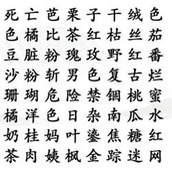 死亡芭栗子干绒色
色橘比茶红枯丝茄
豆脏粉瑰玫野红番
沙粉斩男色复古烂
珊瑚色危险禁锢蜜
橘洋色日杂南瓜水
奶桂妈叶鎏焦糖红
茶肉姨枫金踪迷网